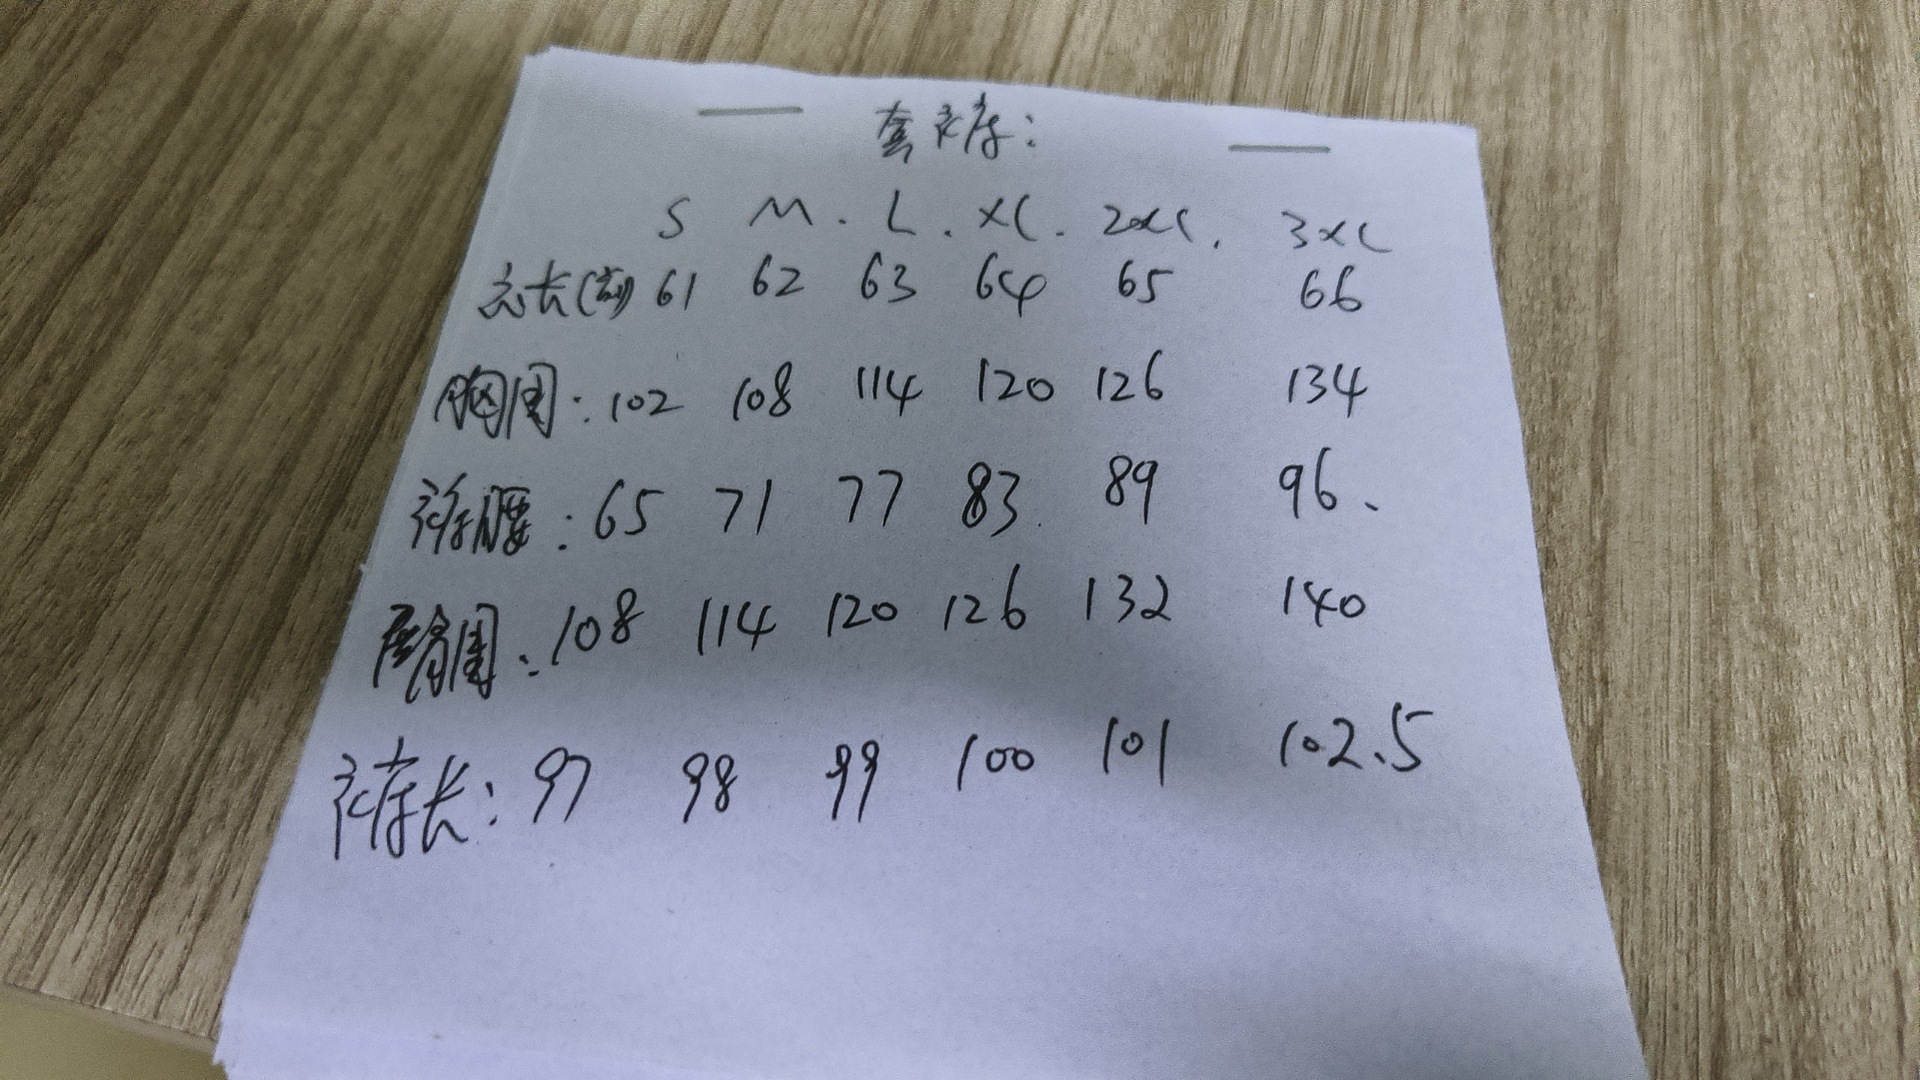 套裤:
S M. L. XL. 2XL. 3XL
衣长(前) 61 62 63 64 65 66
胸围: 102 108 114 120 126 134
裤腰: 65 71 77 83 89 96、
臀围: 108 114 120 126 132 140
裤长: 97 98 99 100 101 102.5